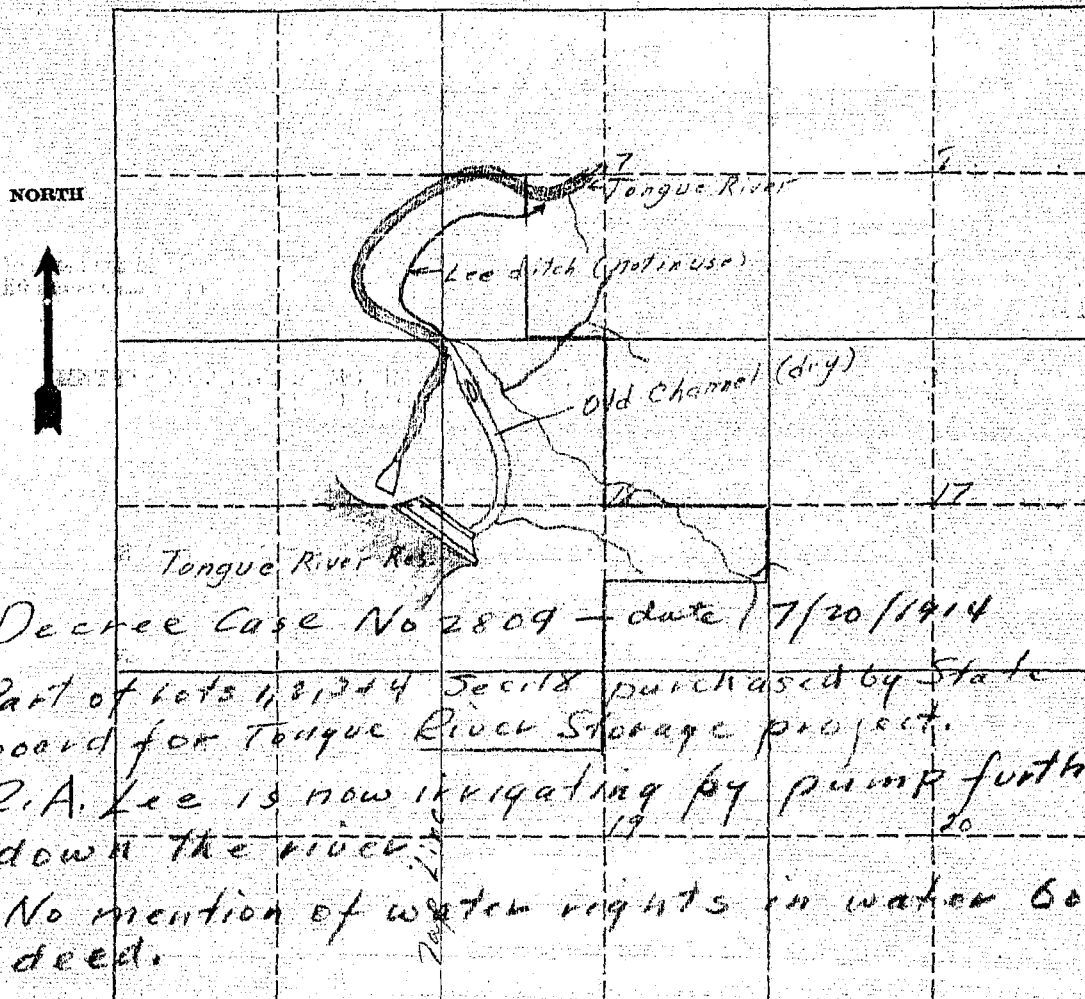 7
8
NORTH
Tongue River
Lee ditch (not in use)
Old Channel (dry)
18
17
Tongue River Res.
Decree Case No 2809 - date 7/20/1914
Part of Lots 1, 2, 3 & 4 Sec. 18 purchased by State
board for Tongue River Storage project.
R.A. Lee is now irrigating by pump furth
down the river.
19
20
No mention of water rights in water bo
deed.
Line